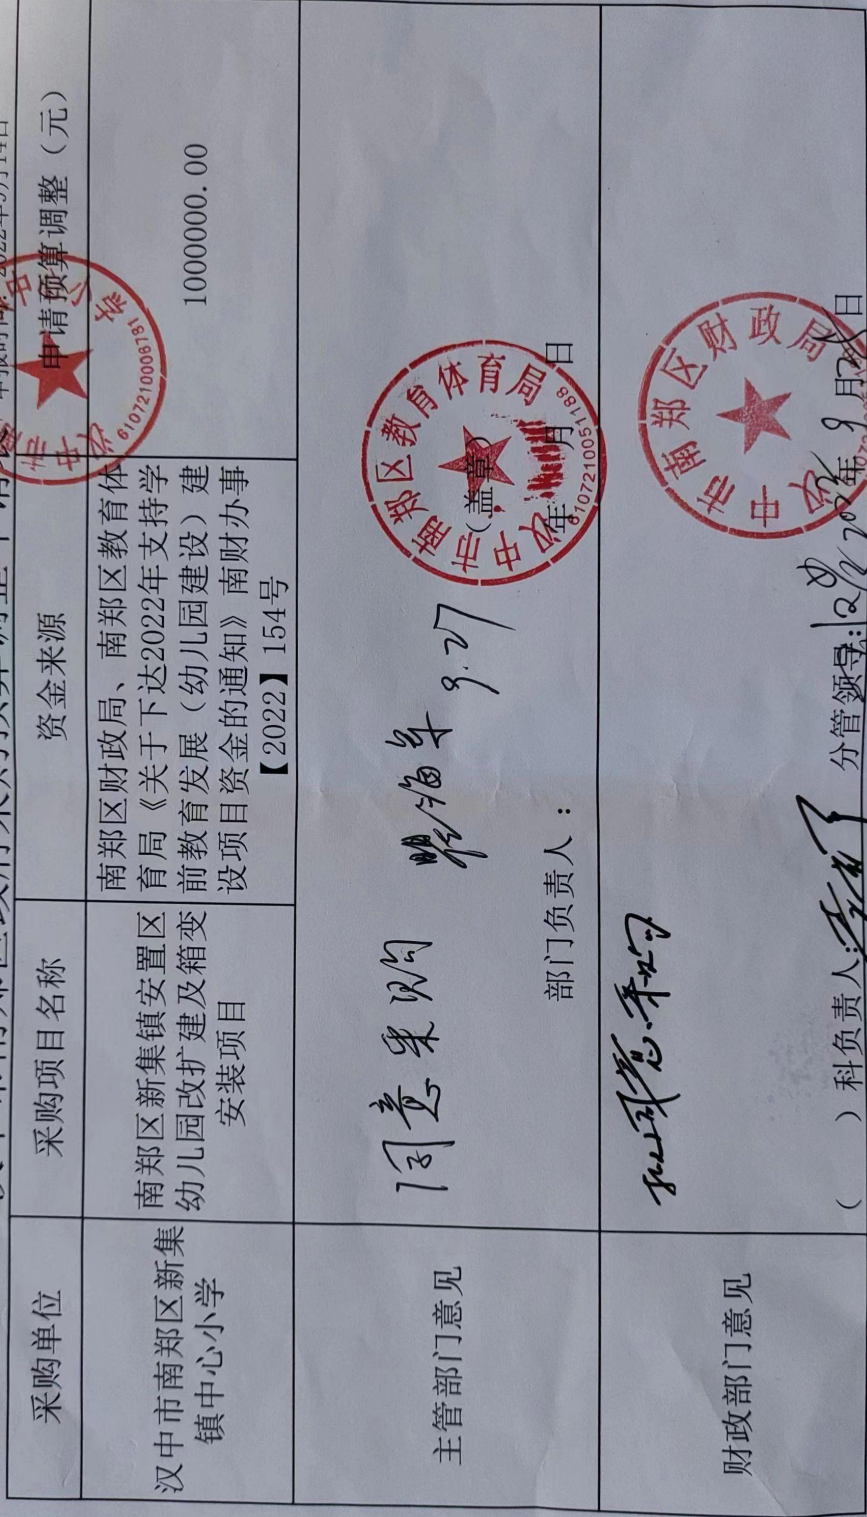 采购单位
采购项目名称
资金来源
申请预算调整（元）
汉中市南郑区新集
镇中心小学
南郑区新集镇安置区
幼儿园改扩建及箱变
安装项目
南郑区财政局、南郑区教育体
育局《关于下达2022年支持学
前教育发展（幼儿园建设）建
设项目资金的通知》南财办事
【2022】154号
1000000.00
主管部门意见
同意采购
9.27
部门负责人：
（盖章）
年 月 日
汉中市南郑区教育体育局
6107210051188
财政部门意见
（ ）科负责人:
分管领导:
2022年9月 日
汉中市南郑区财政局
6107210006781